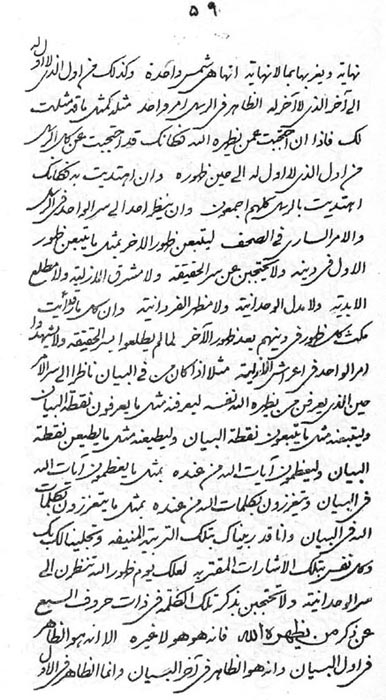 ۵۹
نهایة و یغربها بما لا نهایة انها هی شمس واحدة و کذلک من اول الذی لا اول له
الی آخر الذی لا آخر له الظاهر فی الرسل امر واحد مثله کمثل ما قد مثلت
لک فاذا ان احتجبت عمن یظهره الله فکانک قد احتجبت عن کل الرسل
من اول الذی لا اول له الی حین ظهوره و ان اهتدیت به فکانک
اهتدیت بالرسل کلهم اجمعون و ان ینظر احد الی سر الواحد فی الرسل
و الامر الساری فی الصحف لیتبعن ظهور الآخر بمثل ما یتبعن ظهور
الاول فی دینه و لا یحتجبن عن سر الحقیقه و لا مشرق الازلیة و لا مطلع
الابدیه و لا مدل الوحدانیة و لا مظهر الفردانیة و ان کل ما
مکث کل ظهور فی دینهم بعد ظهور الآخر لما لم یطلعوا بسر الحقیقة و لا یشهدوا
امر الواحد فی اعراش الازلیة مثلا اذ کان من فی البیان ناظرا الی سر الامر
حین الذی یعرفن من یظهره الله نفسه لیعرفنه مثل ما یعرفون نقطة البیان
و لیتبعنه مثل ما یتبعون نقطة البیان و لیطیعنه مثل ما یطیعن نقطة
البیان و لیعظمون آیات الله من عنده بمثل ما یعظمون آیات الله
فی البیان و یتعززون بکلمات الله من عنده بمثل ما یتعززون بکلمات
الله فی البیان و انا قد ربیناک بتلک التربیة المنیفه و تجلینا لک بک
و کل نفس بتلک الاشارات المقتربه لعلک یوم ظهور الله تنظرن الی
سر الوحدانیة و لا تحتجبن بذکر تلک الکلمه فی ذات حروف السبع
عن ذکر من یظهره الله فانه هو هو لا غیره الا انه هو الظاهر
فی اول البیان و انه هو الظاهر فی آخر البیان و انما الظاهر فی الاول